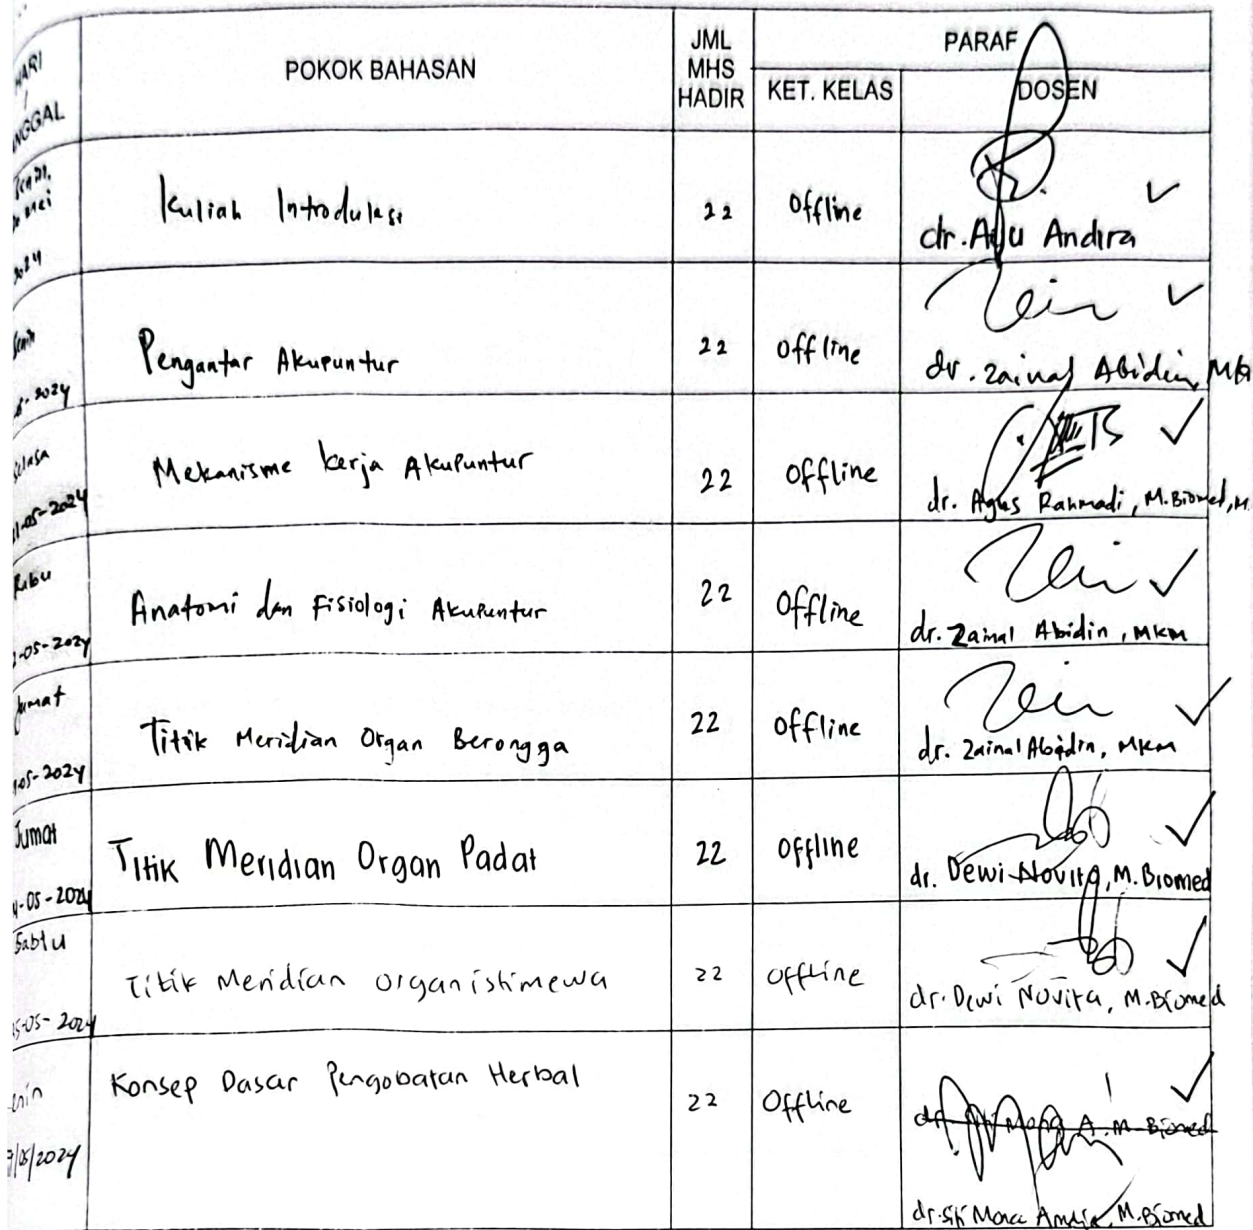 POKOK BAHASAN
JML
MHS
HADIR
PARAF
KET. KELAS
DOSEN
Kuliah Introduksi
22
Offline
dr. Ayu Andira
2024
Senin
Pengantar Akupuntur
22
Offline
dr. Zainal Abidin,
2024
Selasa
Mekanisme kerja Akupuntur
22
Offline
dr. Agus Rahmadi, M.Biomed, M.
05-2024
Rabu
Anatomi dan Fisiologi Akupuntur
22
Offline
dr. Zainal Abidin, MKM
-05-2024
Jumat
Titik Meridian Organ Berongga
22
Offline
dr. Zainal Abidin, MKM
05-2024
Jumat
Titik Meridian Organ Padat
22
Offline
dr. Dewi Novita, M.Biomed
-05-2024
Sabtu
Titik Meridian organ istimewa
22
Offline
dr. Dewi Novita, M.Biomed
-05-2024
Konsep Dasar Pengobatan Herbal
22
Offline
A. M. Biomed
/05/2024
M.Biomed